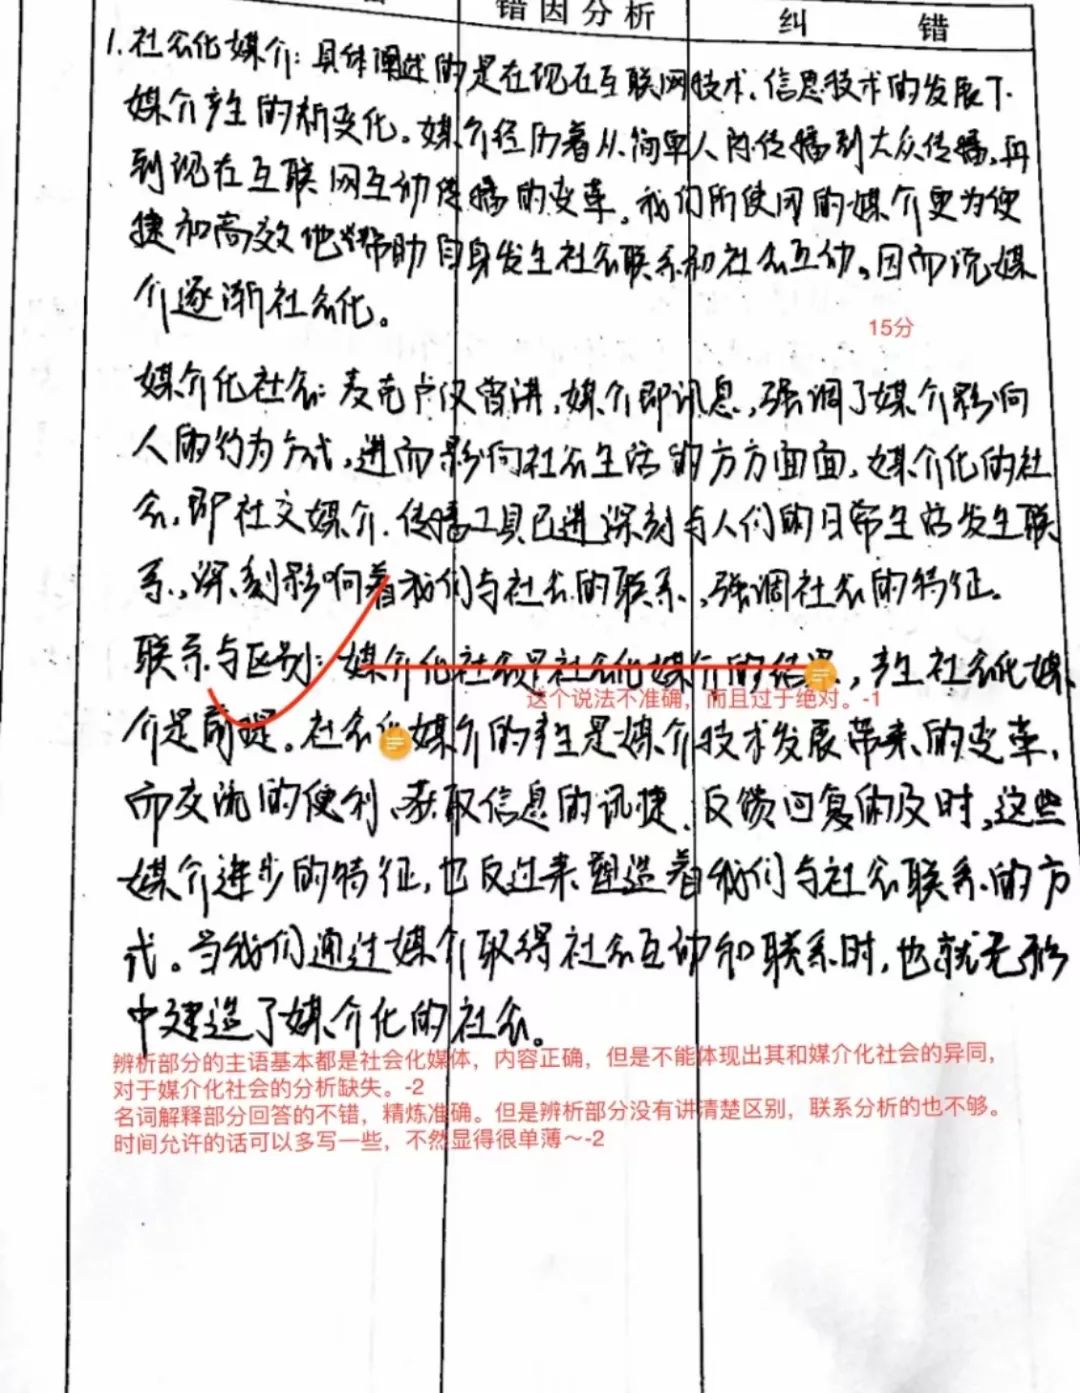 错因分析
纠 错
1.社会化媒介:具体阐述的是在现在互联网技术、信息技术的发展下
媒介产生的新变化。媒介经历着从简单人际传播到大众传播,再
到现在互联网互动传播的变革。我们所使用的媒介更为便
捷和高效地帮助自身发生社会联系和社会互动。因而说媒
介逐渐社会化。
15分
媒介化社会:麦克卢汉曾讲,媒介即讯息,强调了媒介影响
人的行为方式,进而影响社会生活的方方面面,媒介化的社
会,即社交媒介、传播工具已进深刻与人们的日常生活发生联
系,深刻影响着我们与社会的联系,强调社会的特征。
联系与区别:媒介化社会是社会化媒介的结果,产生社会化媒
这个说法不准确,而且过于绝对。-1
介是前提。社会化媒介的产生是媒介技术发展带来的变革,
而交流的便利、获取信息的讯捷、反馈回复的及时,这些
媒介进步的特征,也反过来塑造着我们与社会联系的方
式。当我们通过媒介取得社会互动和联系时,也就无形
中建造了媒介化的社会。
辨析部分的主语基本都是社会化媒体,内容正确,但是不能体现出其和媒介化社会的异同,
对于媒介化社会的分析缺失。-2
名词解释部分回答的不错,精炼准确。但是辨析部分没有讲清楚区别,联系分析的也不够。
时间允许的话可以多写一些,不然显得很单薄～-2